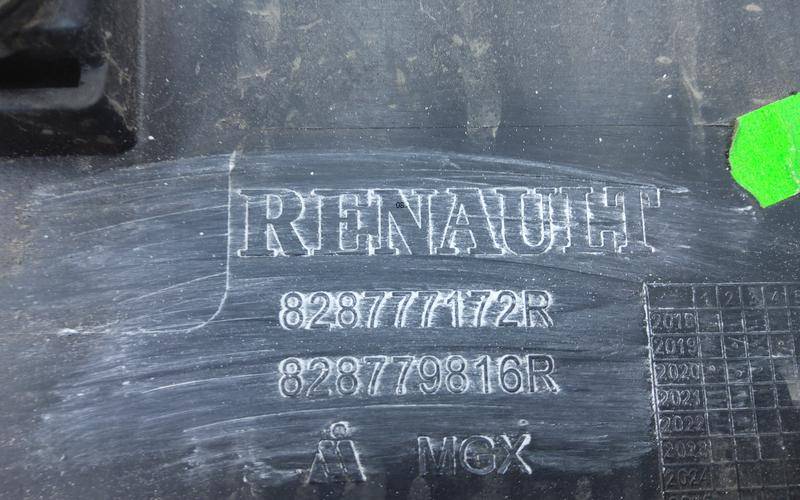 RENAULT
828777172R
828779816R
MGX
1 2 3 4 5
2018
2019
2020
2021
2022
2023
2024